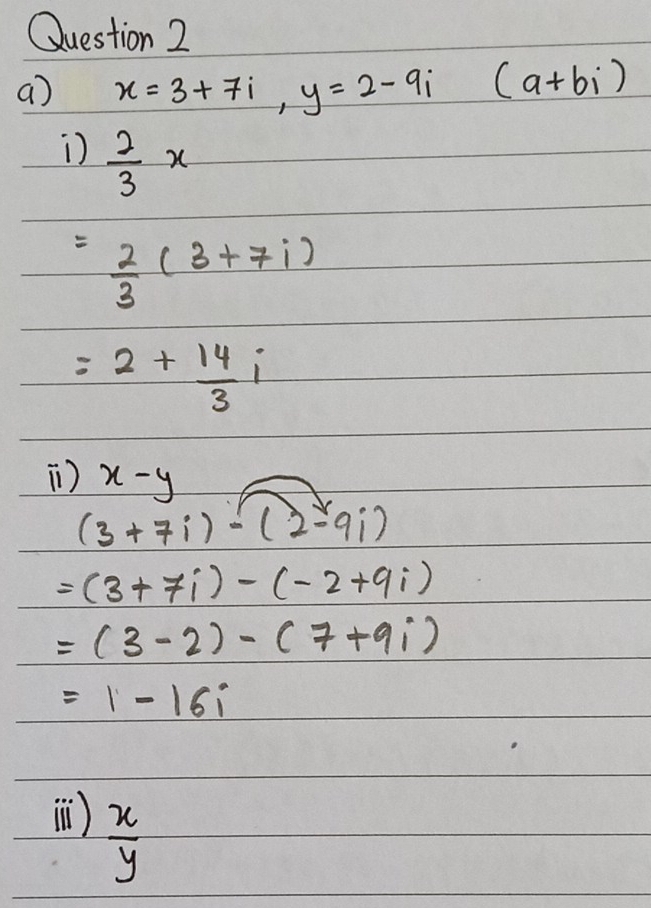 Question 2
a) x = 3 + 7i , y = 2 - 9i (a + bi)
i) 2/3 x
= 2/3 (3 + 7i)
= 2 + 14/3 i
ii) x - y
(3 + 7i) - (2 - 9i)
= (3 + 7i) - (-2 + 9i)
= (3 - 2) - (7 + 9i)
= 1 - 16i
iii) x/y